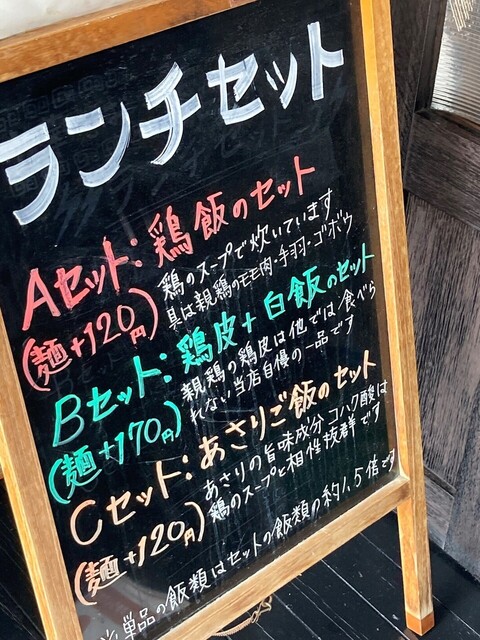 ランチセット
Aセット:鶏飯のセット
(麺+120円)
鶏のスープで炊いています
具は親鶏のモモ肉・手羽・ゴボウ
Bセット:鶏皮+白飯のセット
(麺+170円)
親鶏の鶏皮は他では食べら
れない当店自慢の一品です
Cセット:あさりご飯のセット
(麺+120円)
あさりの旨味成分コハク酸は
鶏のスープと相性抜群です
単品の飯類はセットの飯類の約1.5倍です